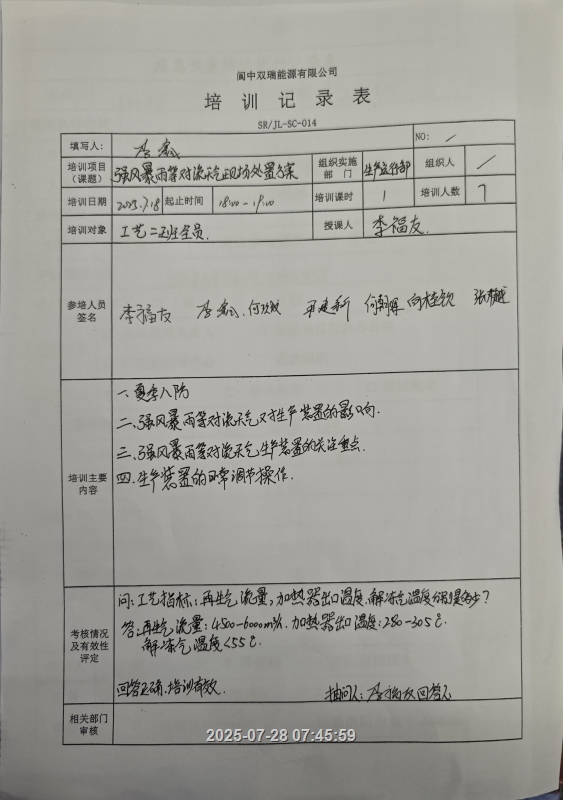 阆中双瑞能源有限公司
培训记录表
SR/JL-SC-014
填写人: NO: /
培训项目（课题） 强风暴雨等对流天气现场处置方案 组织实施部门 生产运行部 组织人 /
培训日期 2025.7.18 起止时间 18:00-19:00 培训课时 1 培训人数 7
培训对象 工艺二班全员. 授课人 李福友.
参培人员签名 李福友
培训主要内容
一.夏季八防
二.强风暴雨等对流天气对生产装置的影响.
三.强风暴雨等对流天气生产装置的关注重点.
四.生产装置的日常调节操作.
考核情况及有效性评定
问:工艺指标:再生气流量,加热器出口温度,解冻气温度分别是多少?
答:再生气流量:4500-6000m³/h. 加热器出口温度:280-305℃.
解冻气温度<55℃.
回答正确.培训有效. 抽问人:李福友 回答人
相关部门审核
2025-07-28 07:45:59